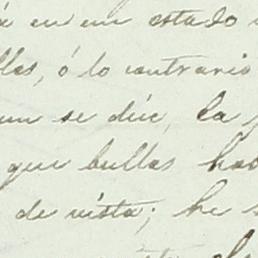 en un estado
ó lo contrario
se dice, la
que bullas
de vista; he